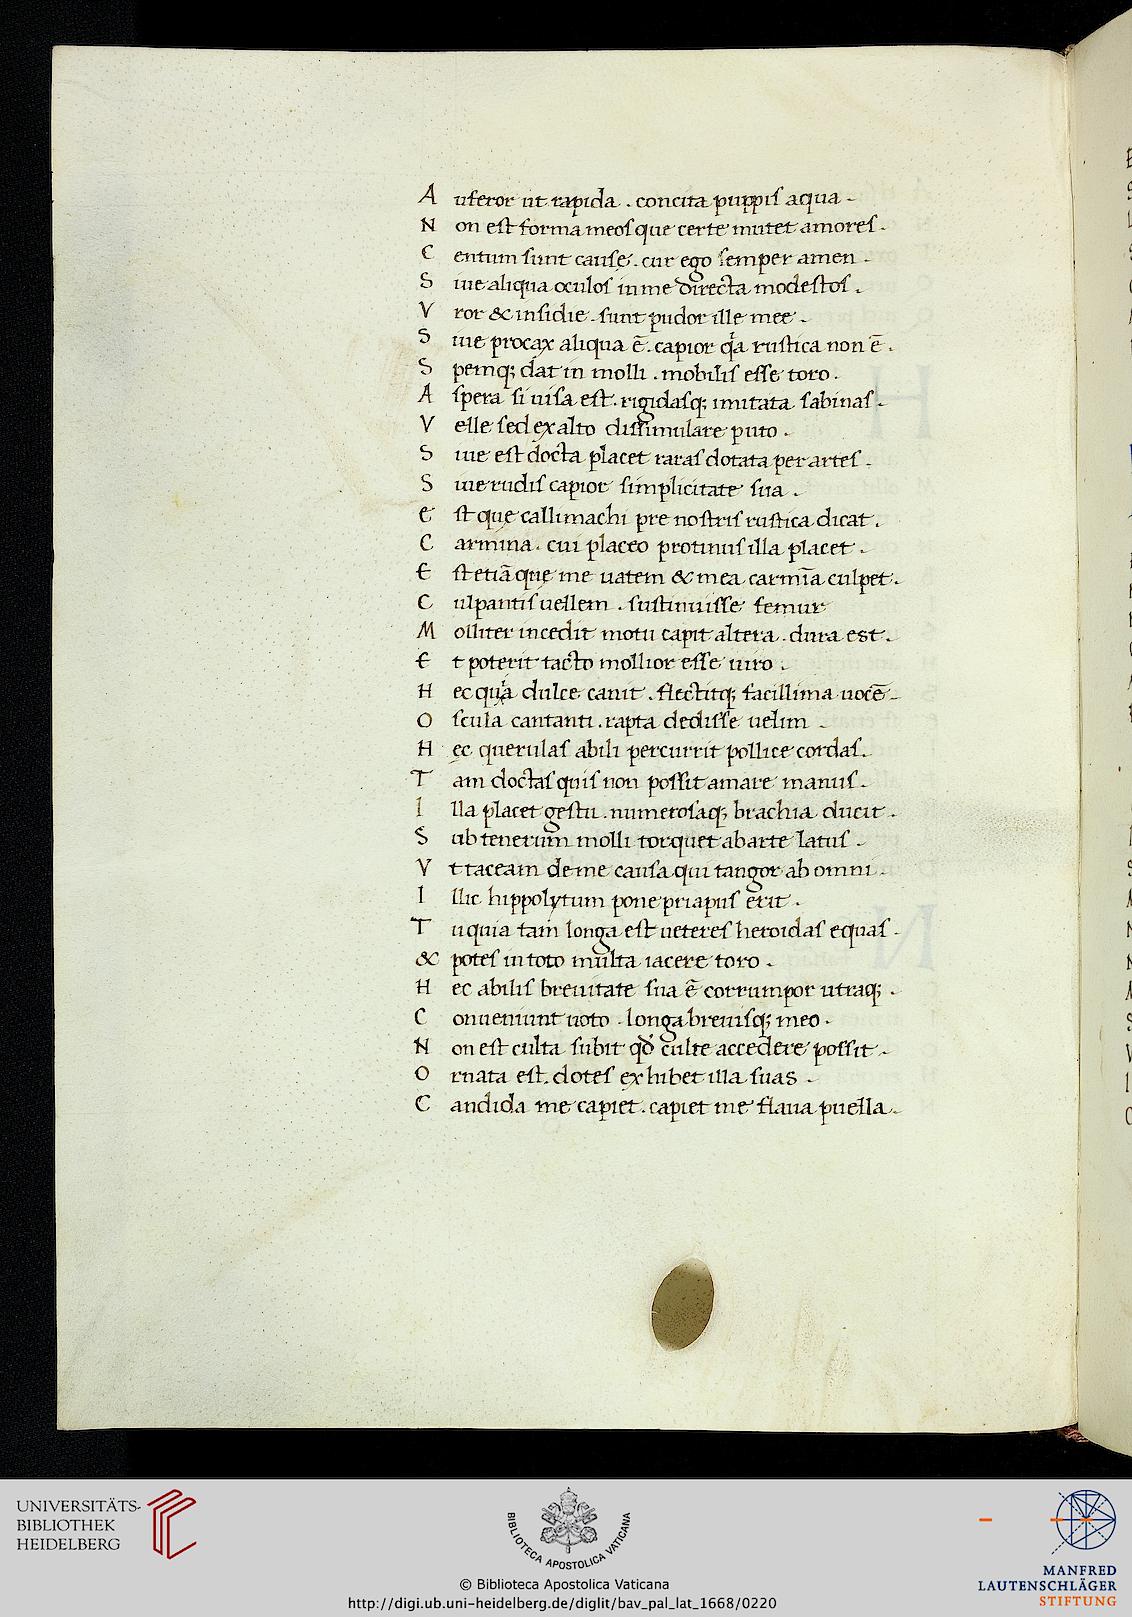 A uferor ut rapida . concita puppis aqua .
N on est forma meos que certe mutet amores .
C entum sunt cause . cur ego semper amen .
S iue aliqua oculos in me directa modestos .
V ror & insidie . sunt pudor ille mee .
S iue procax aliqua ē . capior qa rustica non ē .
S pemq; dat in molli . mobilis esse toro .
A spera si uisa est . rigidasq; imitata sabinas .
V elle sed ex alto dissimulare puto .
S iue est docta placet raras dotata per artes .
S iue rudis capior simplicitate sua .
E st que callimachi pre nostris rustica dicat .
C armina . cui placeo protinus illa placet .
E st etiā que me uatem & mea carmīa culpet .
C ulpantis uellem . sustinuisse femur
M olliter incedit motu capit altera . dura est .
E t poterit tacto mollior esse uiro .
H ec quia dulce canit . flectitq; facillima uocē .
O scula cantanti . rapta dedisse uelim .
H ec querulas abili percurrit pollice cordas .
T am doctas quis non possit amare manus .
I lla placet gestu . numerosaq; brachia ducit .
S ub tenerum molli torquet ab arte latus .
V t taceam de me causa qui tangor ab omni .
I llic hippolytum pone priapus erit .
T u quia tam longa est ueteres heroidas equas .
& potes in toto multa iacere toro .
H ec abilis breuitate sua ē corrumpor utraq; .
C onueniunt uoto . longa breuisq; meo .
N on est culta subit qd culte accedere possit .
O rnata est . dotes exhibet illa suas .
C andida me capiet . capiet me flaua puella .
UNIVERSITÄTS-
BIBLIOTHEK
HEIDELBERG
BIBLIOTECA APOSTOLICA VATICANA
MANFRED
LAUTENSCHLÄGER
STIFTUNG
© Biblioteca Apostolica Vaticana
http://digi.ub.uni-heidelberg.de/diglit/bav_pal_lat_1668/0220